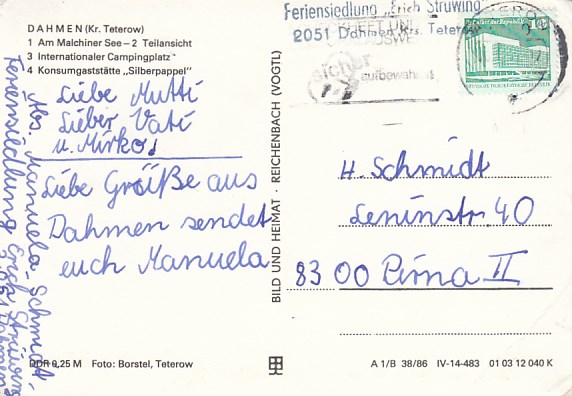 DAHMEN (Kr. Teterow)
1 Am Malchiner See – 2 Teilansicht
3 Internationaler Campingplatz
4 Konsumgaststätte „Silberpappel"
Liebe Mutti
Lieber Vati
u. Mirko!
Liebe Grüße aus
Dahmen sendet
euch Manuela
Abs. Manuela Schmidt
Feriensiedlung Erich Struwing
2051 Dahmen
DDR 0,25 M Foto: Borstel, Teterow
BILD UND HEIMAT · REICHENBACH (VOGTL)
Feriensiedlung „Erich Struwing"
2051 Dahmen Krs. Teterow
sicher
aufbewahren
H. Schmidt
Leninstr. 40
8300 Pirna II
A 1/B 38/86 IV-14-483 01 03 12 040 K